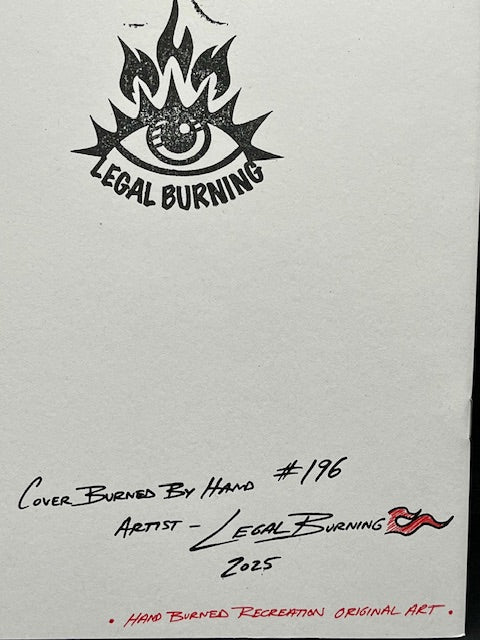 LEGAL BURNING
COVER BURNED BY HAND #196
ARTIST - LEGAL BURNING
2025
• HAND BURNED RECREATION ORIGINAL ART •